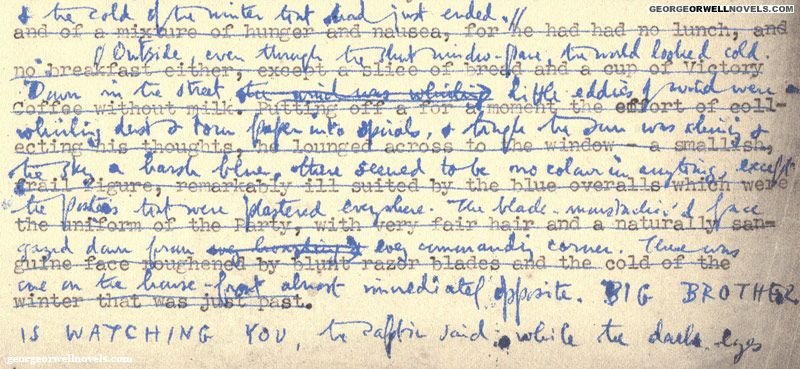 GEORGEORWELLNOVELS.COM
& the cold of the winter that had just ended. //
and of a mixture of hunger and nausea, for he had had no lunch, and
Outside, even through the shut window-pane, the world looked cold.
no breakfast either, except a slice of bread and a cup of Victory
Down in the street the wind was whirling little eddies of wind were
Coffee without milk. Putting off a for a moment the effort of coll-
whirling dust & torn paper into spirals, & though the sun was shining &
ecting his thoughts, he lounged across to the window - a smallish,
the sky a harsh blue, there seemed to be no colour in anything, except
frail figure, remarkably ill suited by the blue overalls which were
the posters that were plastered everywhere. The black-moustachio'd face
the uniform of the Party, with very fair hair and a naturally san-
gazed down from every commanding corner. There was
guine face roughened by blunt razor blades and the cold of the
one on the house-front almost immediately opposite. BIG BROTHER
winter that was just past.
IS WATCHING YOU, the caption said, while the dark eyes
georgeorwellnovels.com